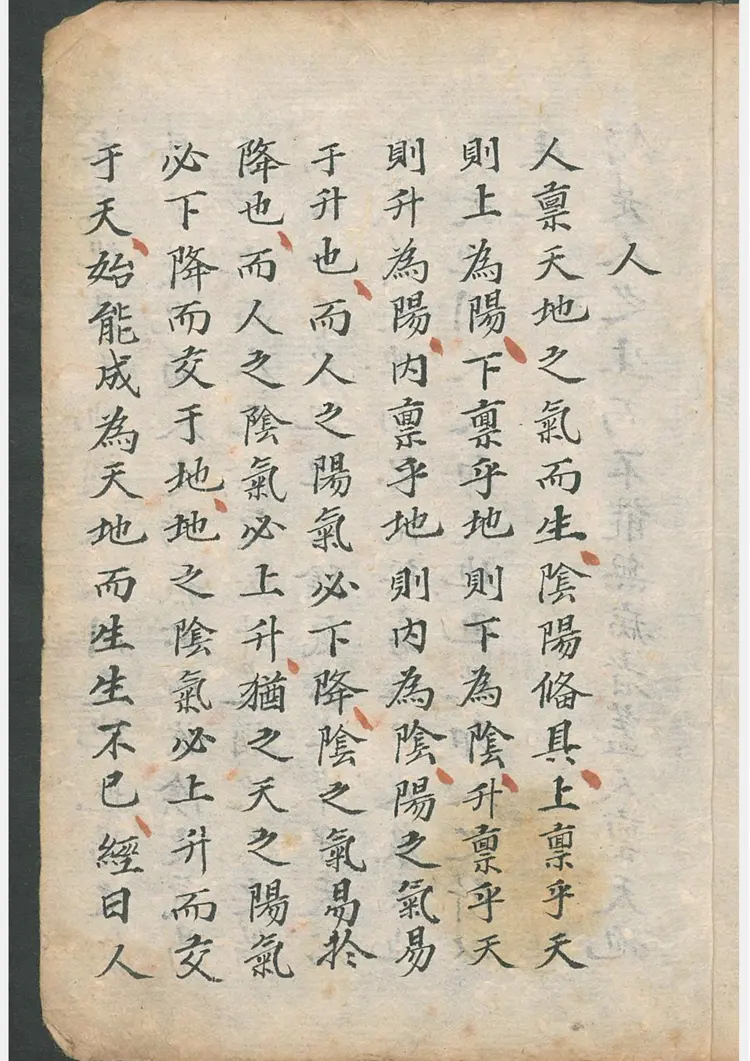 人
人稟天地之氣而生陰陽俻具上稟乎天
則上為陽下稟乎地則下為陰升稟乎天
則升為陽內稟乎地則內為陰陽之氣易
于升也而人之陽氣必下降陰之氣易於
降也而人之陰氣必上升猶之天之陽氣
必下降而交于地地之陰氣必上升而交
于天始能成為天地而生生不已經曰人